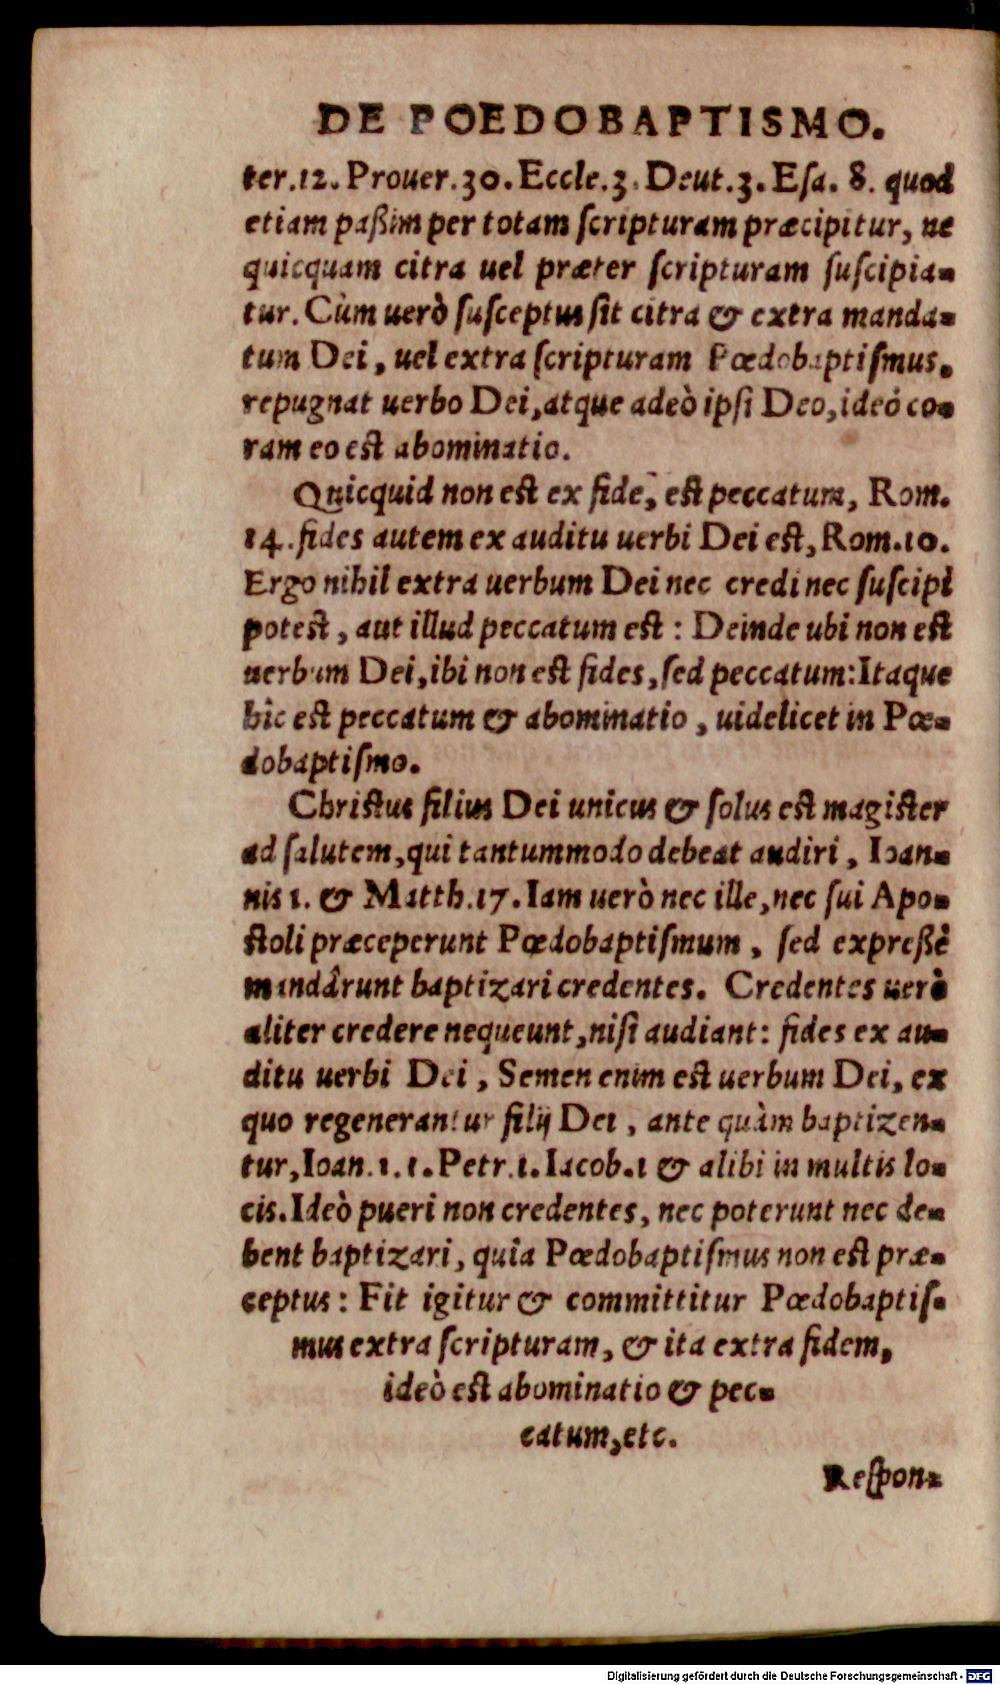 DE POEDOBAPTISMO.
ter.12. Prouer.30. Eccle.3. Deut.3. Eſa. 8. quod
etiam paßim per totam ſcripturam præcipitur, ne
quicquam citra uel præter ſcripturam ſuſcipia-
tur. Cùm uerò ſuſceptus ſit citra & extra manda-
tum Dei, uel extra ſcripturam Pœdobaptiſmus,
repugnat uerbo Dei, atque adeò ipſi Deo, ideó co-
ram eo eſt abominatio.
Quicquid non eſt ex fide, eſt peccatum, Rom.
14. fides autem ex auditu uerbi Dei eſt, Rom.10.
Ergo nihil extra uerbum Dei nec credi nec ſuſcipi
poteſt, aut illud peccatum eſt: Deinde ubi non eſt
uerbum Dei, ibi non eſt fides, ſed peccatum: Itaque
hîc eſt peccatum & abominatio, uidelicet in Pœ-
dobaptiſmo.
Chriſtus filius Dei unicus & ſolus eſt magiſter
ad ſalutem, qui tantummodo debeat audiri, Ioan-
nis 1. & Matth.17. Iam uerò nec ille, nec ſui Apo-
ſtoli præceperunt Pœdobaptiſmum, ſed expreßè
mandârunt baptizari credentes. Credentes uerò
aliter credere nequeunt, niſi audiant: fides ex au-
ditu uerbi Dei, Semen enim eſt uerbum Dei, ex
quo regenerantur filij Dei, ante quàm baptizen-
tur, Ioan.1.1. Petr.1. Iacob.1 & alibi in multis lo-
cis. Ideò pueri non credentes, nec poterunt nec de-
bent baptizari, quia Pœdobaptiſmus non eſt præ-
ceptus: Fit igitur & committitur Pœdobaptiſ-
mus extra ſcripturam, & ita extra fidem,
ideò eſt abominatio & pec-
catum, etc.
Reſpon-
Digitalisierung gefördert durch die Deutsche Forschungsgemeinschaft - DFG